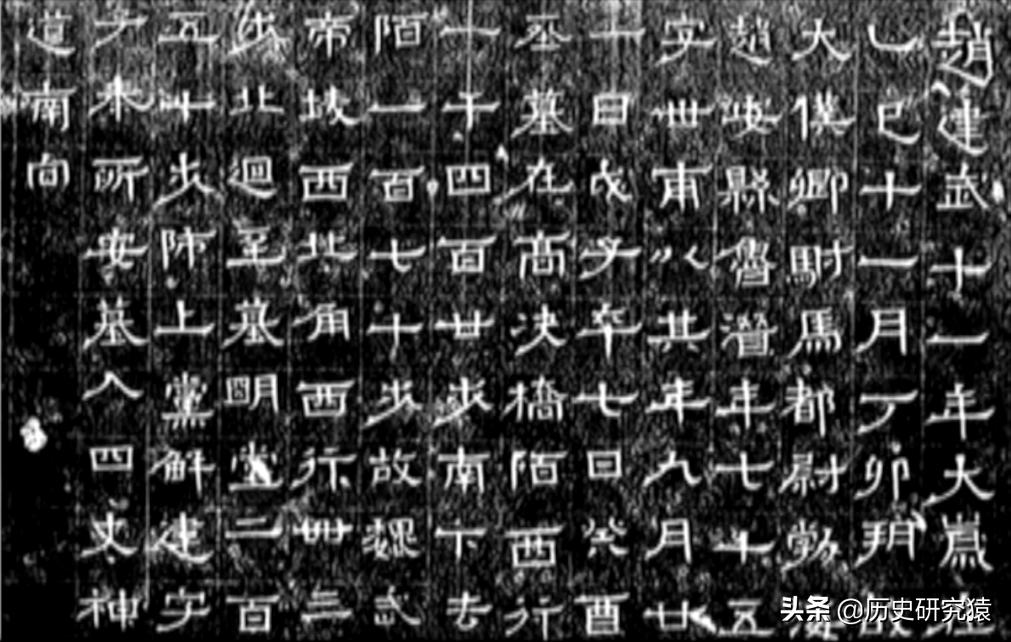 趙建武十一年大歲在
乙巳十一月丁卯朔故
大僕卿駙馬都尉勃海
趙安縣魯潛年七十五
字世甫以其年九月廿
一日戊子卒七日癸酉
葬墓在高決橋陌西行
一千四百廿步南下去
陌一百七十步故魏武
帝陵西北角西行卌三
步北迴至墓明堂二百
五十步師上黨解建字
子奉所安墓入四丈神
道南向
头条 @历史研究猿